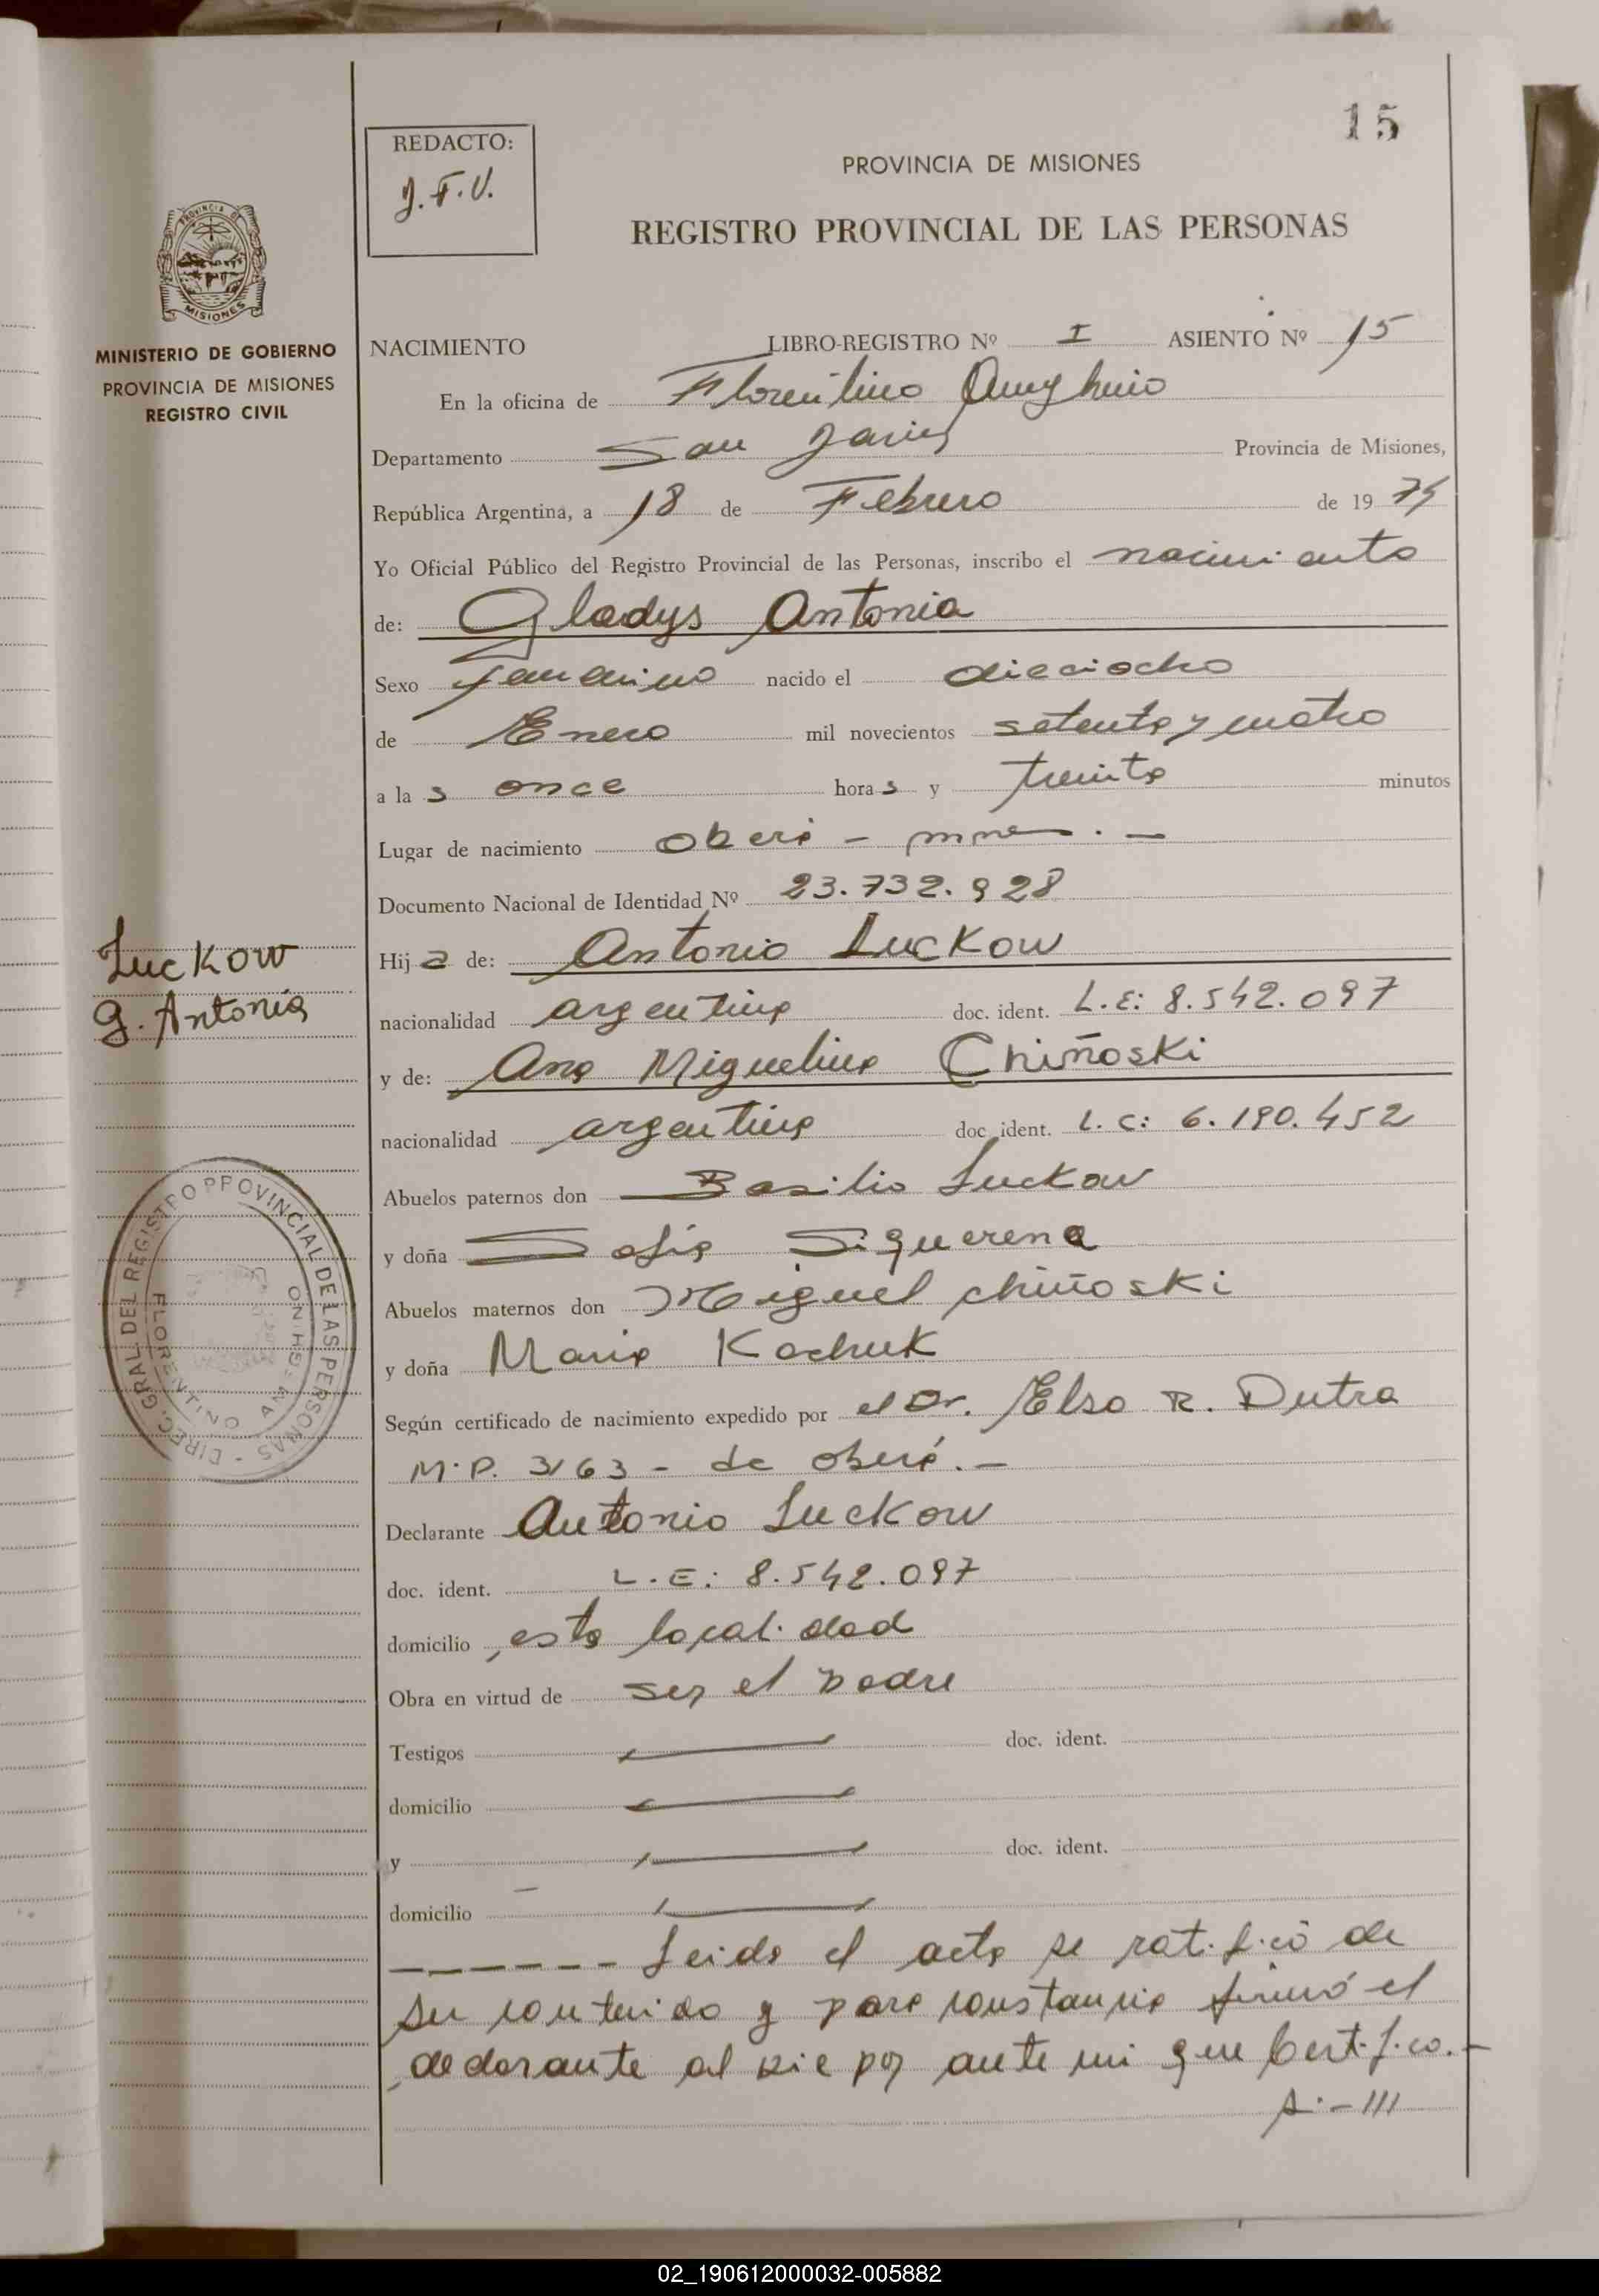 15
REDACTO:
J.F.V.
PROVINCIA DE MISIONES
REGISTRO PROVINCIAL DE LAS PERSONAS
PROVINCIA DE
MISIONES
MINISTERIO DE GOBIERNO
PROVINCIA DE MISIONES
REGISTRO CIVIL
NACIMIENTO LIBRO-REGISTRO Nº I ASIENTO Nº 15
En la oficina de Florentino Ameghino
Departamento San Javier Provincia de Misiones,
República Argentina, a 18 de Febrero de 19 74
Yo Oficial Público del Registro Provincial de las Personas, inscribo el nacimiento
de: Gladys Antonia
Sexo femenino nacido el dieciocho
de Enero mil novecientos setenta y cuatro
a la s once hora s y treinta minutos
Lugar de nacimiento Oberá - mnes. -
Documento Nacional de Identidad Nº 23.732.928
Luckow
G. Antonia
Hij a de: Antonio Luckow
nacionalidad argentina doc. ident. L.E: 8.542.097
y de: Ana Miguelina Chiñoski
nacionalidad argentina doc. ident. L.C: 6.190.452
Abuelos paternos don Basilio Luckow
y doña Sofia Siguerena
Abuelos maternos don Miguel Chiñoski
y doña Maria Kachuk
Según certificado de nacimiento expedido por el Dr. Elso R. Dutra
M.P. 3163 - de oberá.-
Declarante Antonio Luckow
doc. ident. L.E: 8.542.097
domicilio esta localidad
Obra en virtud de ser el padre
Testigos doc. ident.
domicilio
y doc. ident.
domicilio
------ Leida el acta se ratificó de
su contenido y para constancia firmó el
declarante al pie por ante mi que Certifico.-
s.-///
DIREC. GRAL. DEL REGISTRO PROVINCIAL DE LAS PERSONAS -
FLORENTINO AMEGHINO
02_190612000032-005882